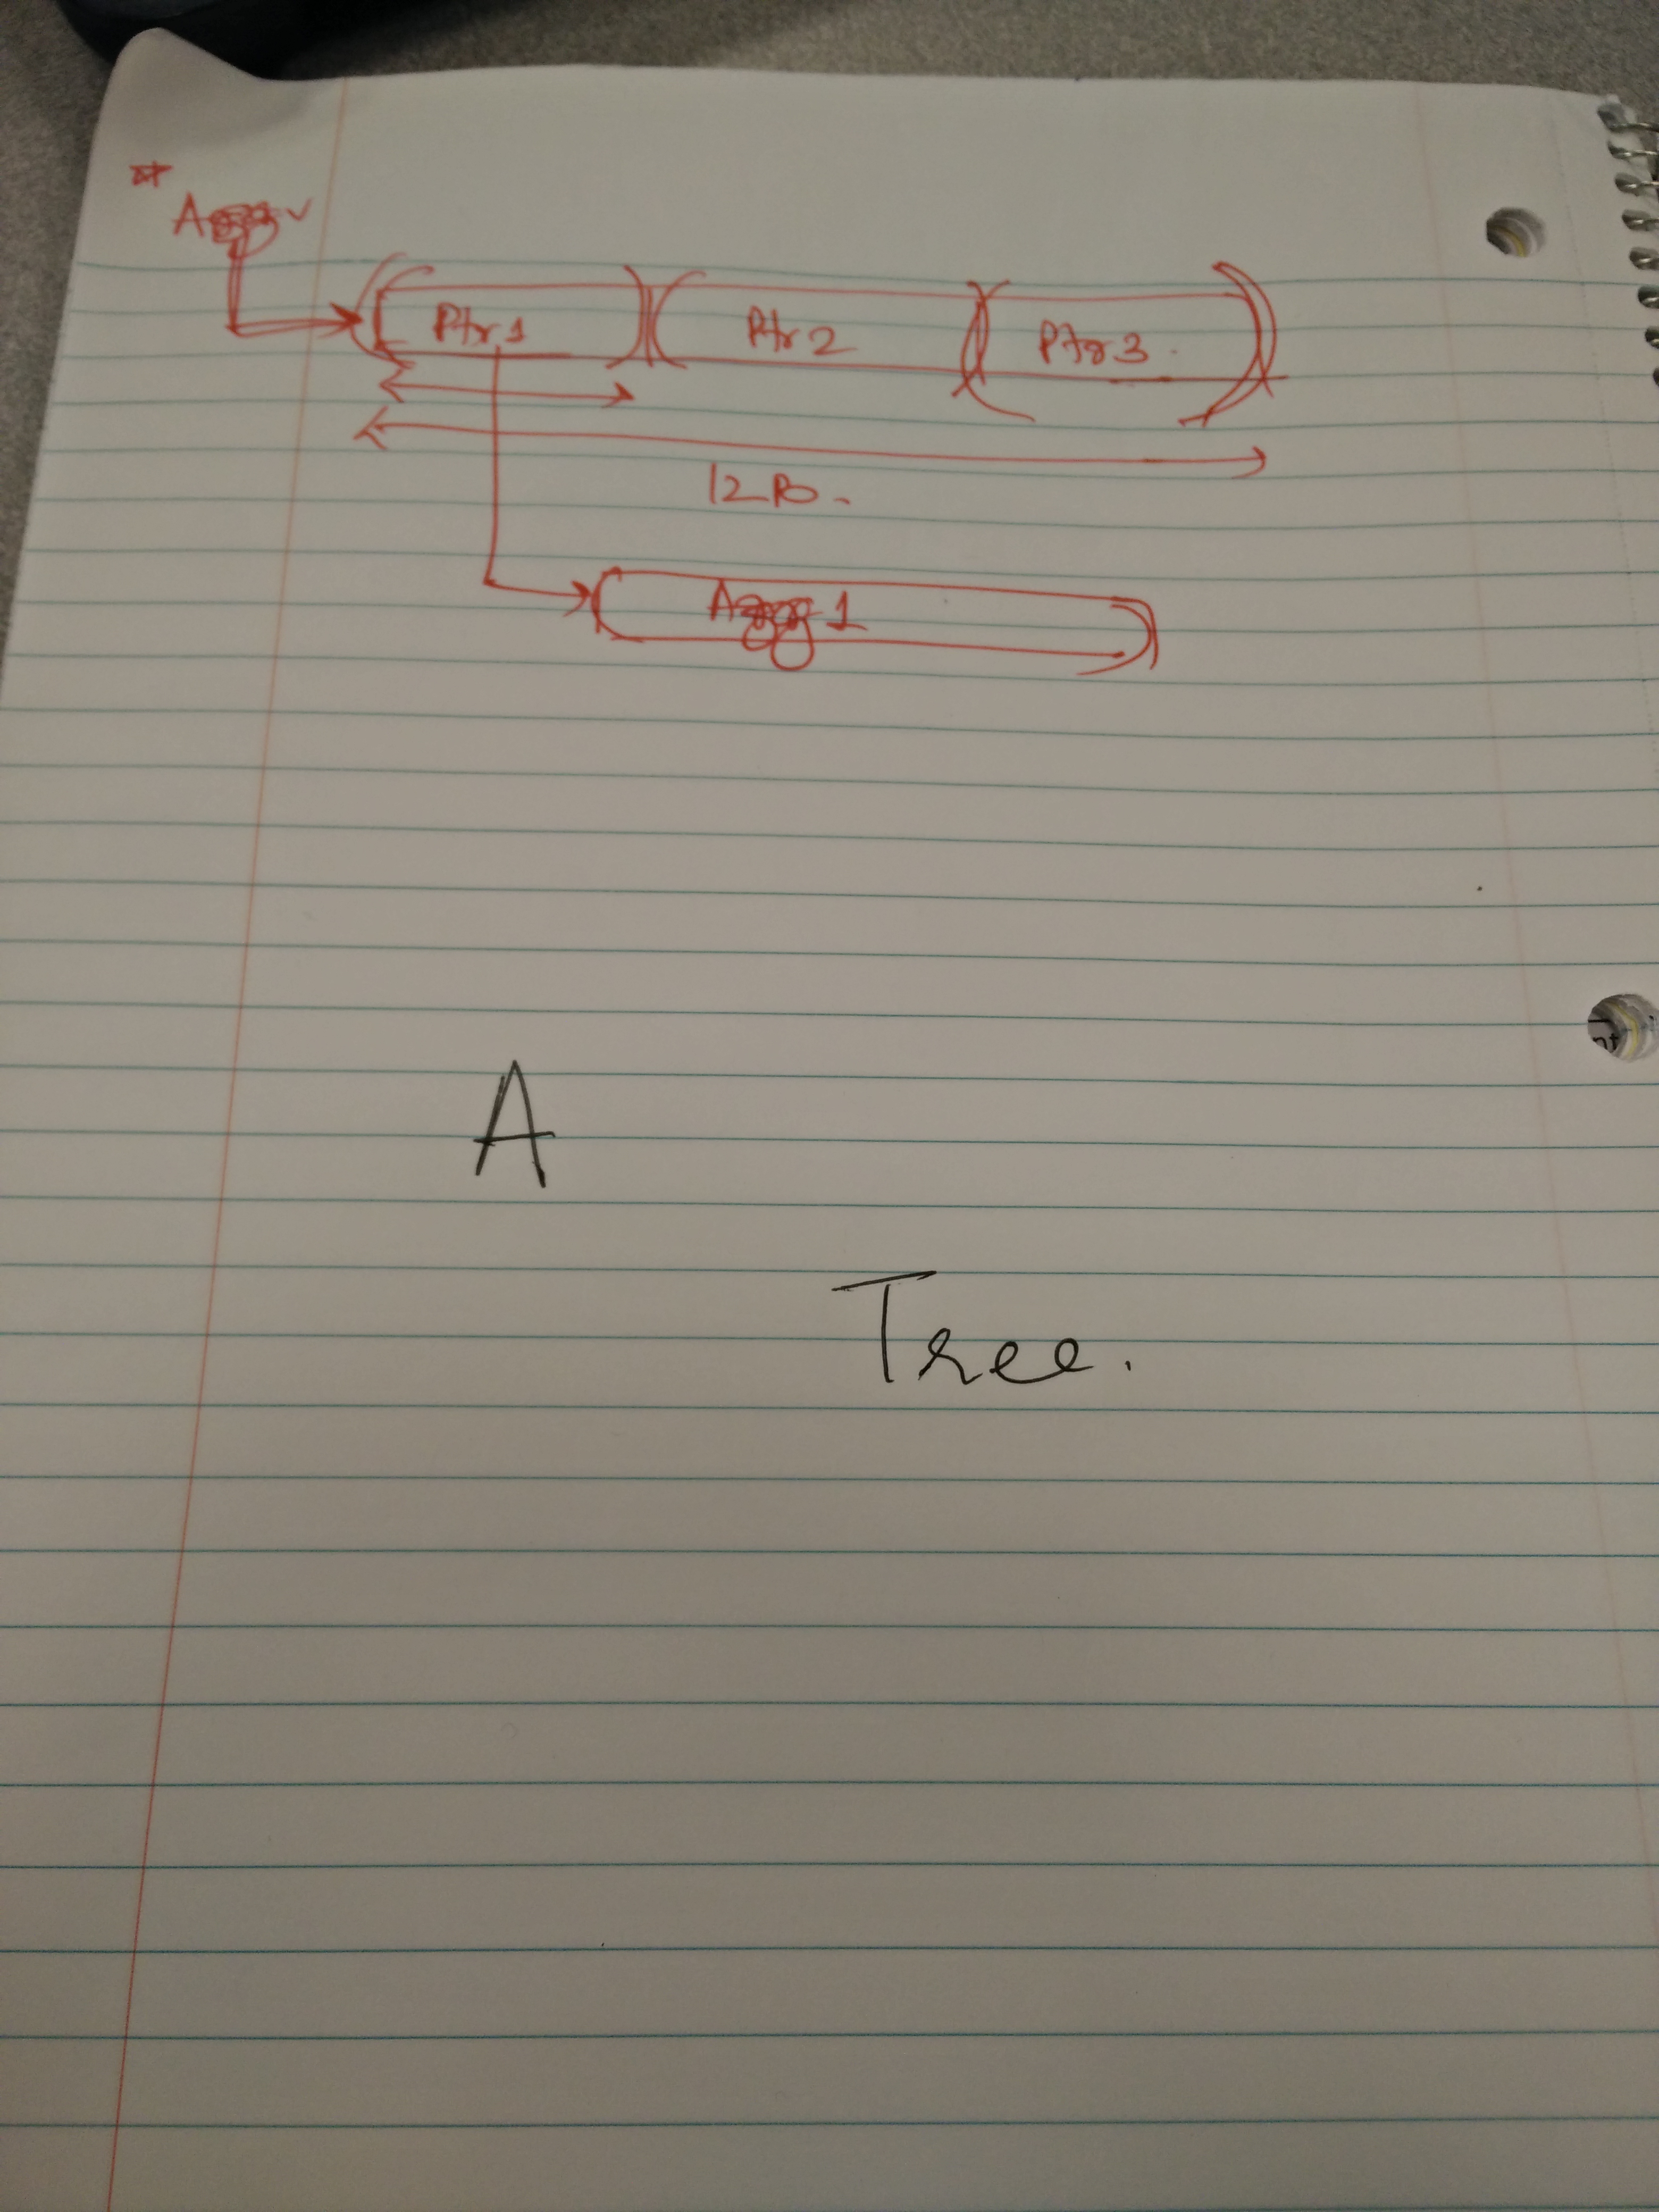 **
Aggv
Ptr1 Ptr2 Ptr3
Agg1
A
Tree.